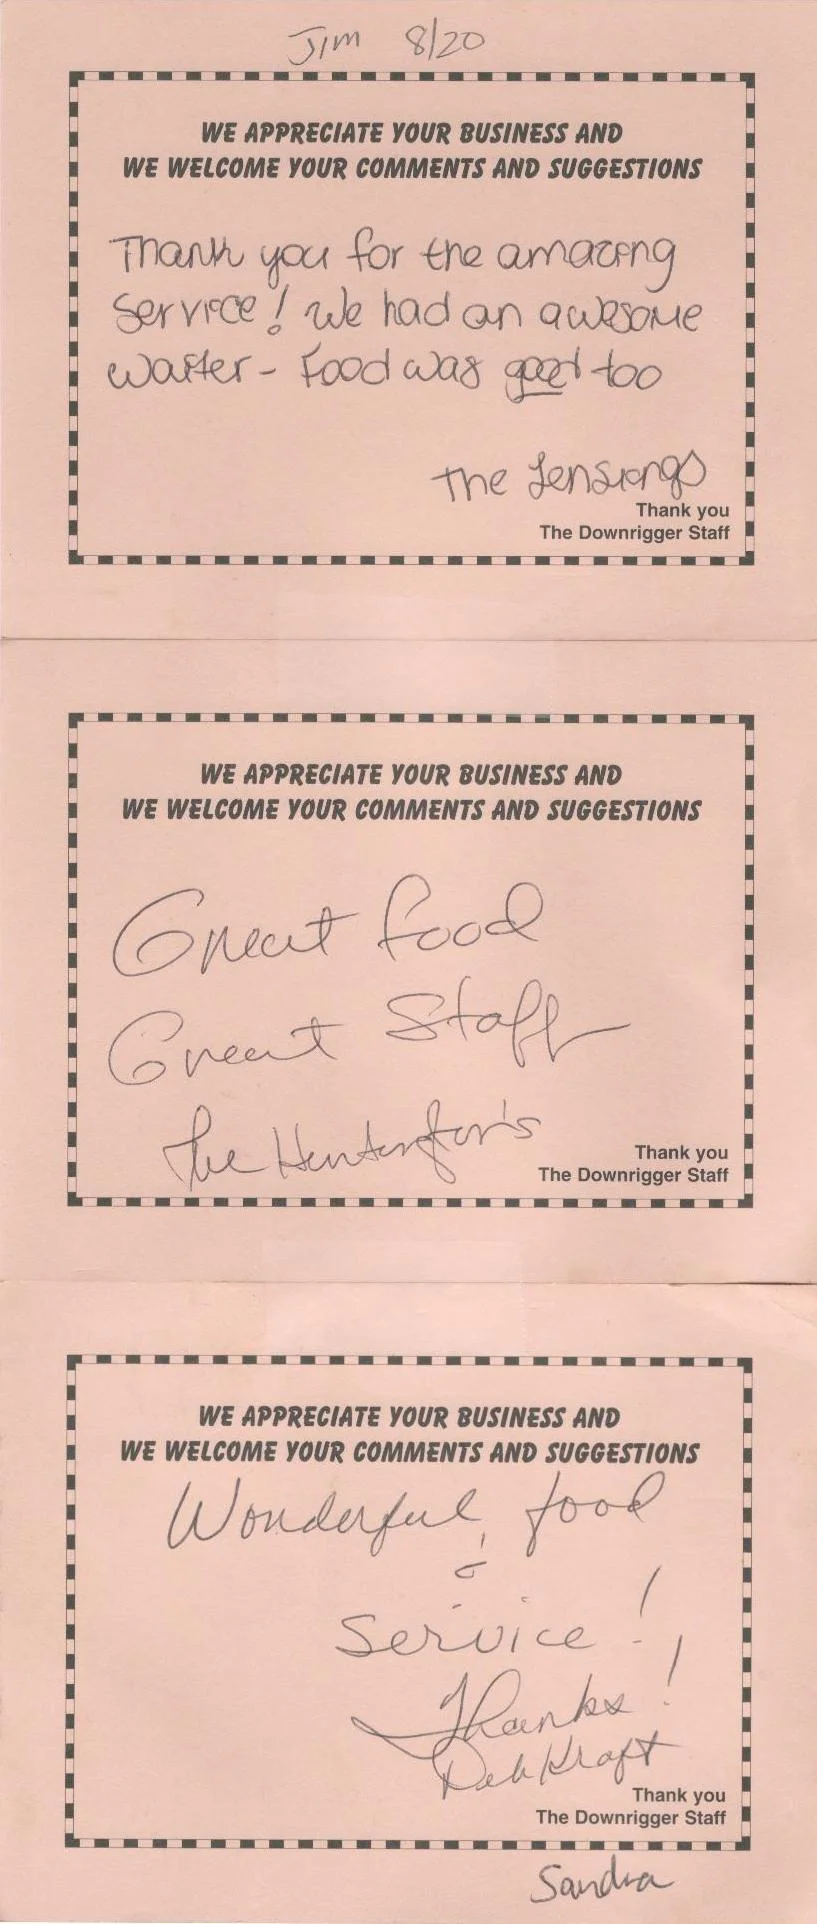 Jim 8/20
WE APPRECIATE YOUR BUSINESS AND
WE WELCOME YOUR COMMENTS AND SUGGESTIONS
Thank you for the amazing
service! We had an awesome
waiter - Food was good too
The
Thank you
The Downrigger Staff
WE APPRECIATE YOUR BUSINESS AND
WE WELCOME YOUR COMMENTS AND SUGGESTIONS
Great food
Great Staff
The
Thank you
The Downrigger Staff
WE APPRECIATE YOUR BUSINESS AND
WE WELCOME YOUR COMMENTS AND SUGGESTIONS
Wonderful food
&
Service!
Thanks!
Deb Kraft
Thank you
The Downrigger Staff
Sandra